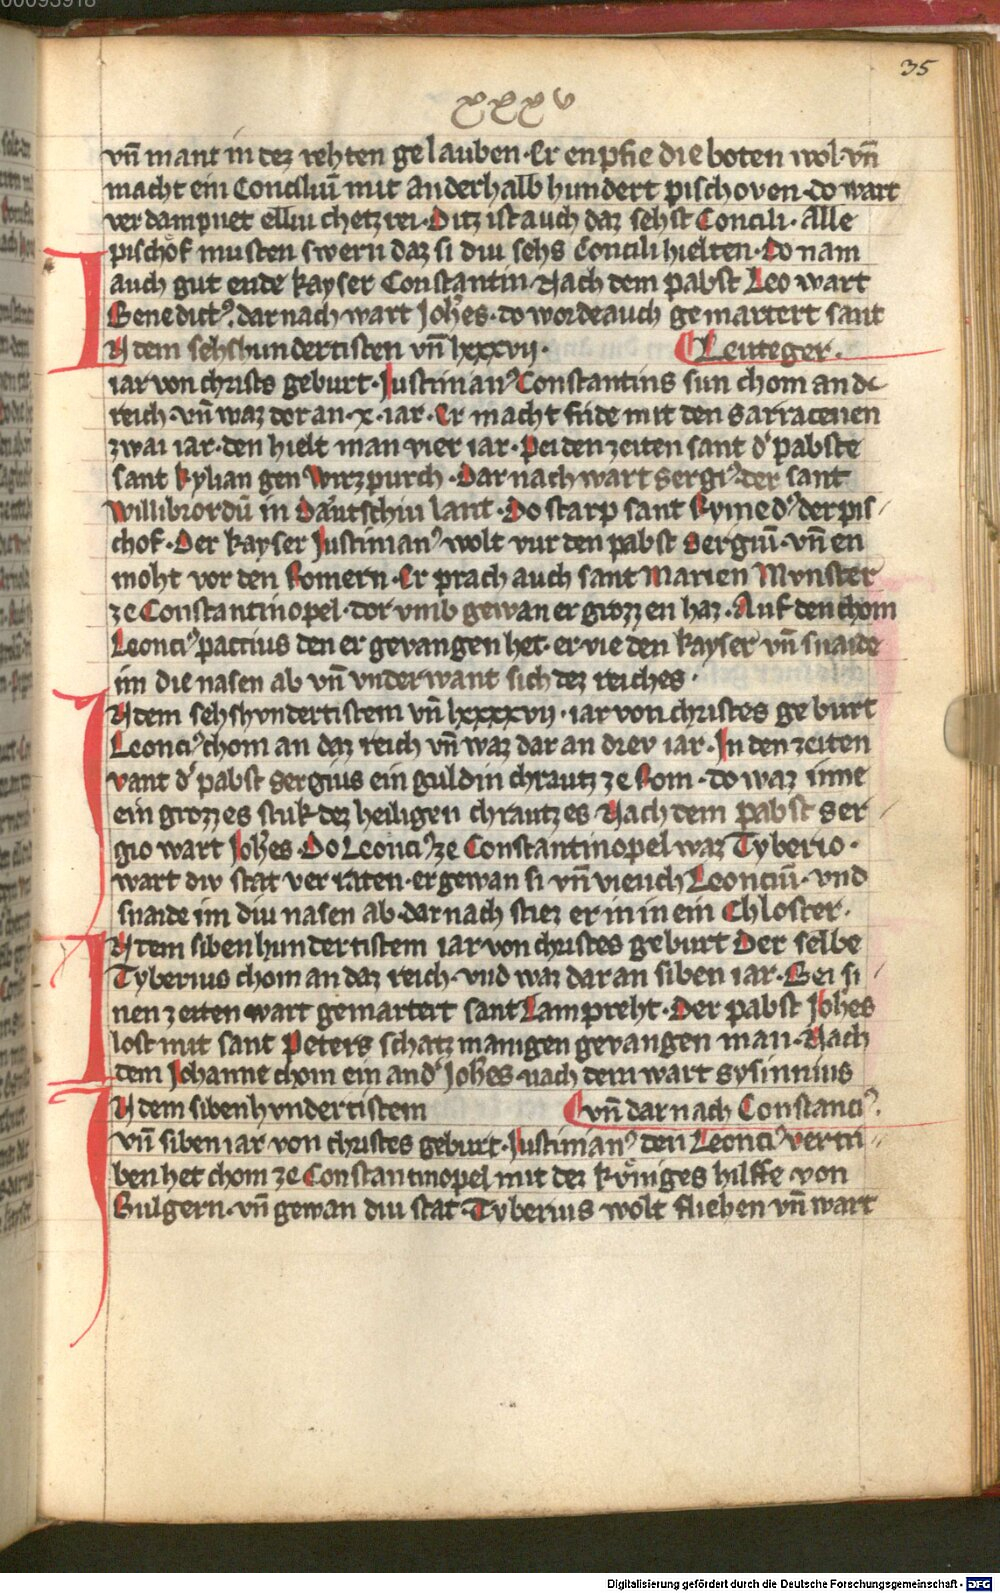 00093918
35
xxxv
vn̄ mant in dez rehten gelauben · Er enpfie die boten wol · vn̄
macht ein Conciliū mit anderhalb hundert pischoven · do wart
verdampnet elliu chetzrei · Ditz ist auch daz sehst Concili · Alle
pischof musten swern daz si diu sehs Concili hielten · Do nam
auch gut ende kayser Constantin · Nach dem pabst Leo wart
Benedict⁹ · dar nach wart Joh̄es · do worde auch gemartert sant
IN dem sehshundertisten vn̄ lxxxvij · Leuteger ·
iar von christs geburt · Justinian⁹ Constantins sun chom an dc
reich · vn̄ waz dor an · x · iar · Er macht fride mit den Sarracenen
zwai iar · den hielt man vier iar · Pei den zeiten sant d' pabste
sant kylian gen Wirzpurch · Dar nach wart Sergi⁹ · der sant
Willibrordū in Dautschiu lant · Do starp sant Symed⁹ der pis/
chof · Der kayser Justinian⁹ wolt vur den pabst Sergiū · vn̄ en
moht vor den Romern · Er prach auch sant Marien Mvnster
ze Constantinopel · dor vmb gewan er grozzen haz · Auf den chom
Leonci⁹ patrius den er gevangen het · er vie den kayser vn̄ snaide
im die nasen ab vn̄ vnderwant sich dez reiches ·
IN dem sehshvndertistem vn̄ lxxxxvij · iar von christes geburt
Leonci⁹ chom an daz reich vn̄ waz dar an drev iar · In den zeiten
vant d' pabst Sergius ein guldin chrautz ze Rom · do waz inne
ein grozzes stuk dez heiligen chrautzes Nach dem pabst Ser/
gio wart Joh̄es · Do Leonci⁹ ze Constantinopel waz Tyberio ·
wart div stat verraten · er gewan si vn̄ vieuch Leonciū · vnd
snaide im diu nasen ab · dar nach stiez er in in ein Chloster ·
IN dem sibenhundertistem iar von christes geburt Der selbe
Tyberius chom an daz reich · vnd waz dar an siben iar · Bei si/
nen zeiten wart gemartert sant Lampreht · Der pabst Joh̄es
lost mit sant Peters schatz manigen gevangen man · Nach
dem Johanne chom ein and' Joh̄es · nach dem wart Sysinnius
IN dem sibenhvndertistem vn̄ dar nach Constanci⁹ ·
vn̄ siben iar von christes geburt · Justinian⁹ den Leonci⁹ vertri/
ben het chom ze Constantinopel mit dez kv̊niges hilffe von
Bulgern · vn̄ gewan diu stat · Tyberius wolt fliehen vn̄ wart
Digitalisierung gefördert durch die Deutsche Forschungsgemeinschaft - DFG